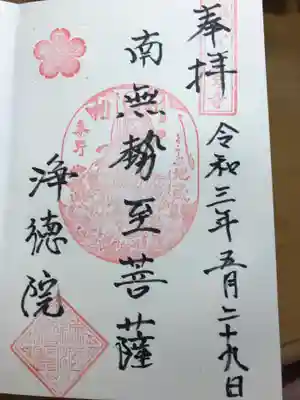 奉拝
令和三年五月二十九日
南無勢至菩薩
浄徳院